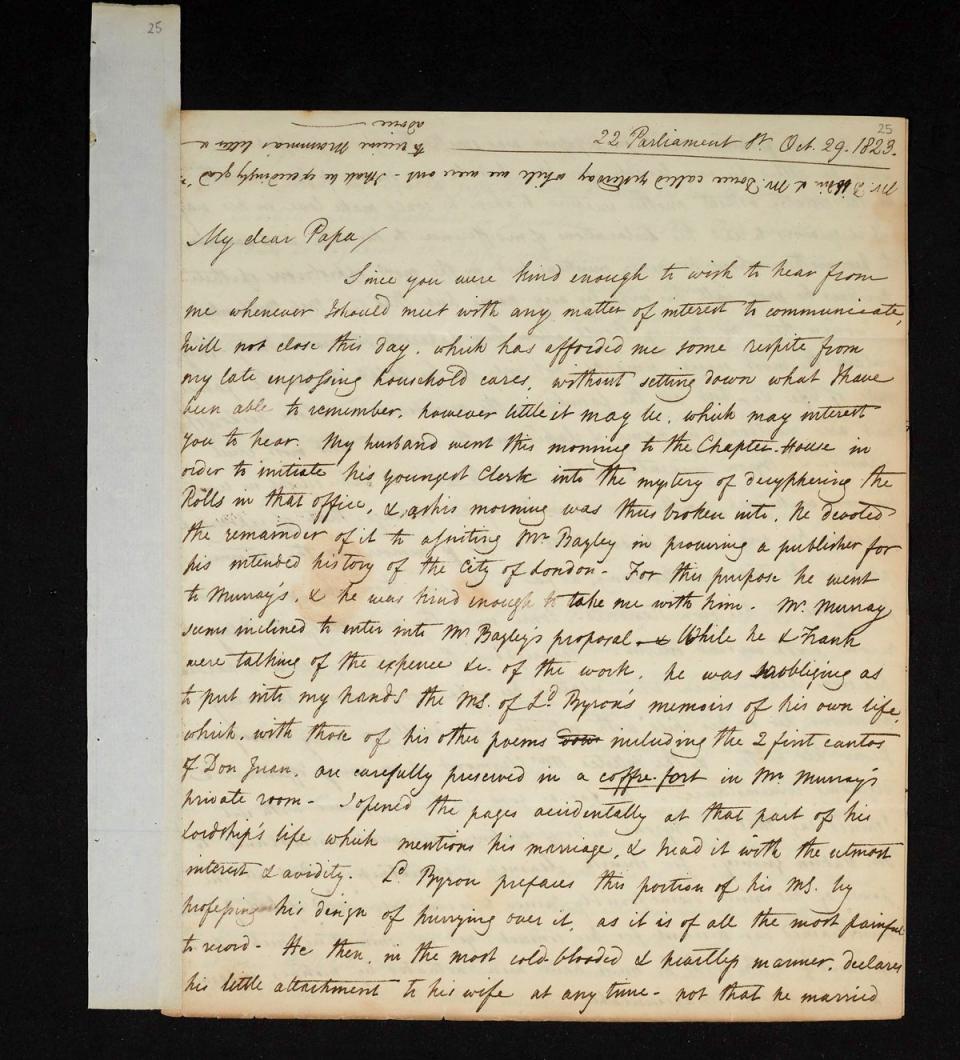 25
25
22 Parliament St. Oct. 29. 1823.
Mr. & Mr. Douce called yesterday while we were out - I shall be exceedingly glad
to receive Mamma's letter &
advice
My dear Papa/
Since you were kind enough to wish to hear from
me whenever I should meet with any matter of interest to communicate,
I will not close this day, which has afforded me some respite from
my late engrossing household cares, without setting down what I have
been able to remember, however little it may be, which may interest
you to hear. My husband went this morning to the Chapter-House in
order to initiate his youngest Clerk into the mystery of decyphering the
Rolls in that office, & as his morning was thus broken into, he devoted
the remainder of it to assisting Mr Bayley in procuring a publisher for
his intended history of the City of London - For this purpose he went
to Murray's, & he was kind enough to take me with him. Mr. Murray
seems inclined to enter into Mr Bayley's proposal - & While he & Frank
were talking of the expence &c. of the work, he was so obliging as
to put into my hands the MS. of Ld Byron's memoirs of his own life,
which, with those of his other poems including the 2 first cantos
of Don Juan, are carefully preserved in a coffre-fort in Mr Murray's
private room - I opened the pages accidentally at that part of his
Lordship's life which mentions his marriage, & read it with the utmost
interest & avidity. Ld Byron prefaces this portion of his MS. by
professing his design of hurrying over it, as it is of all the most painful
to record - He then, in the most cold-blooded & heartless manner, declares
his little attachment to his wife at any time - not that he married